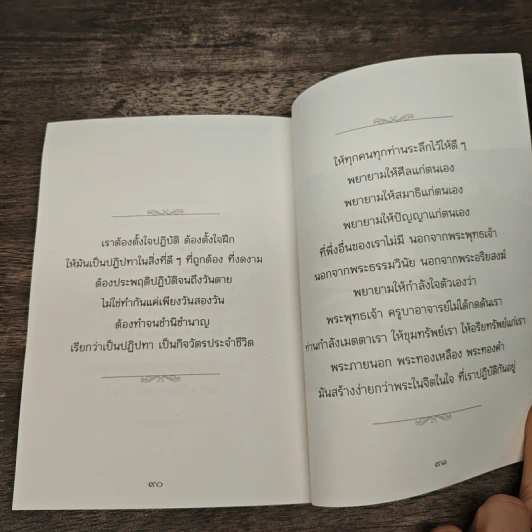 เราต้องตั้งใจปฏิบัติ ต้องตั้งใจฝึก
ให้มันเป็นปฏิปทาในสิ่งที่ดี ๆ ที่ถูกต้อง ที่งดงาม
ต้องประพฤติปฏิบัติจนถึงวันตาย
ไม่ใช่ทำกันแค่เพียงวันสองวัน
ต้องทำจนชำนิชำนาญ
เรียกว่าเป็นปฏิปทา เป็นกิจวัตรประจำชีวิต
๙๐
ให้ทุกคนทุกท่านระลึกไว้ให้ดี ๆ
พยายามให้ศีลแก่ตนเอง
พยายามให้สมาธิแก่ตนเอง
พยายามให้ปัญญาแก่ตนเอง
ที่พึ่งอื่นของเราไม่มี นอกจากพระพุทธเจ้า
นอกจากพระธรรมวินัย นอกจากพระอริยสงฆ์
พยายามให้กำลังใจตัวเองว่า
พระพุทธเจ้า ครูบาอาจารย์ไม่ได้กดดันเรา
ท่านกำลังเมตตาเรา ให้ขุมทรัพย์เรา ให้อริยทรัพย์แก่เรา
พระภายนอก พระทองเหลือง พระทองคำ
มันสร้างง่ายกว่าพระในจิตในใจ ที่เราปฏิบัติกันอยู่
๙๑